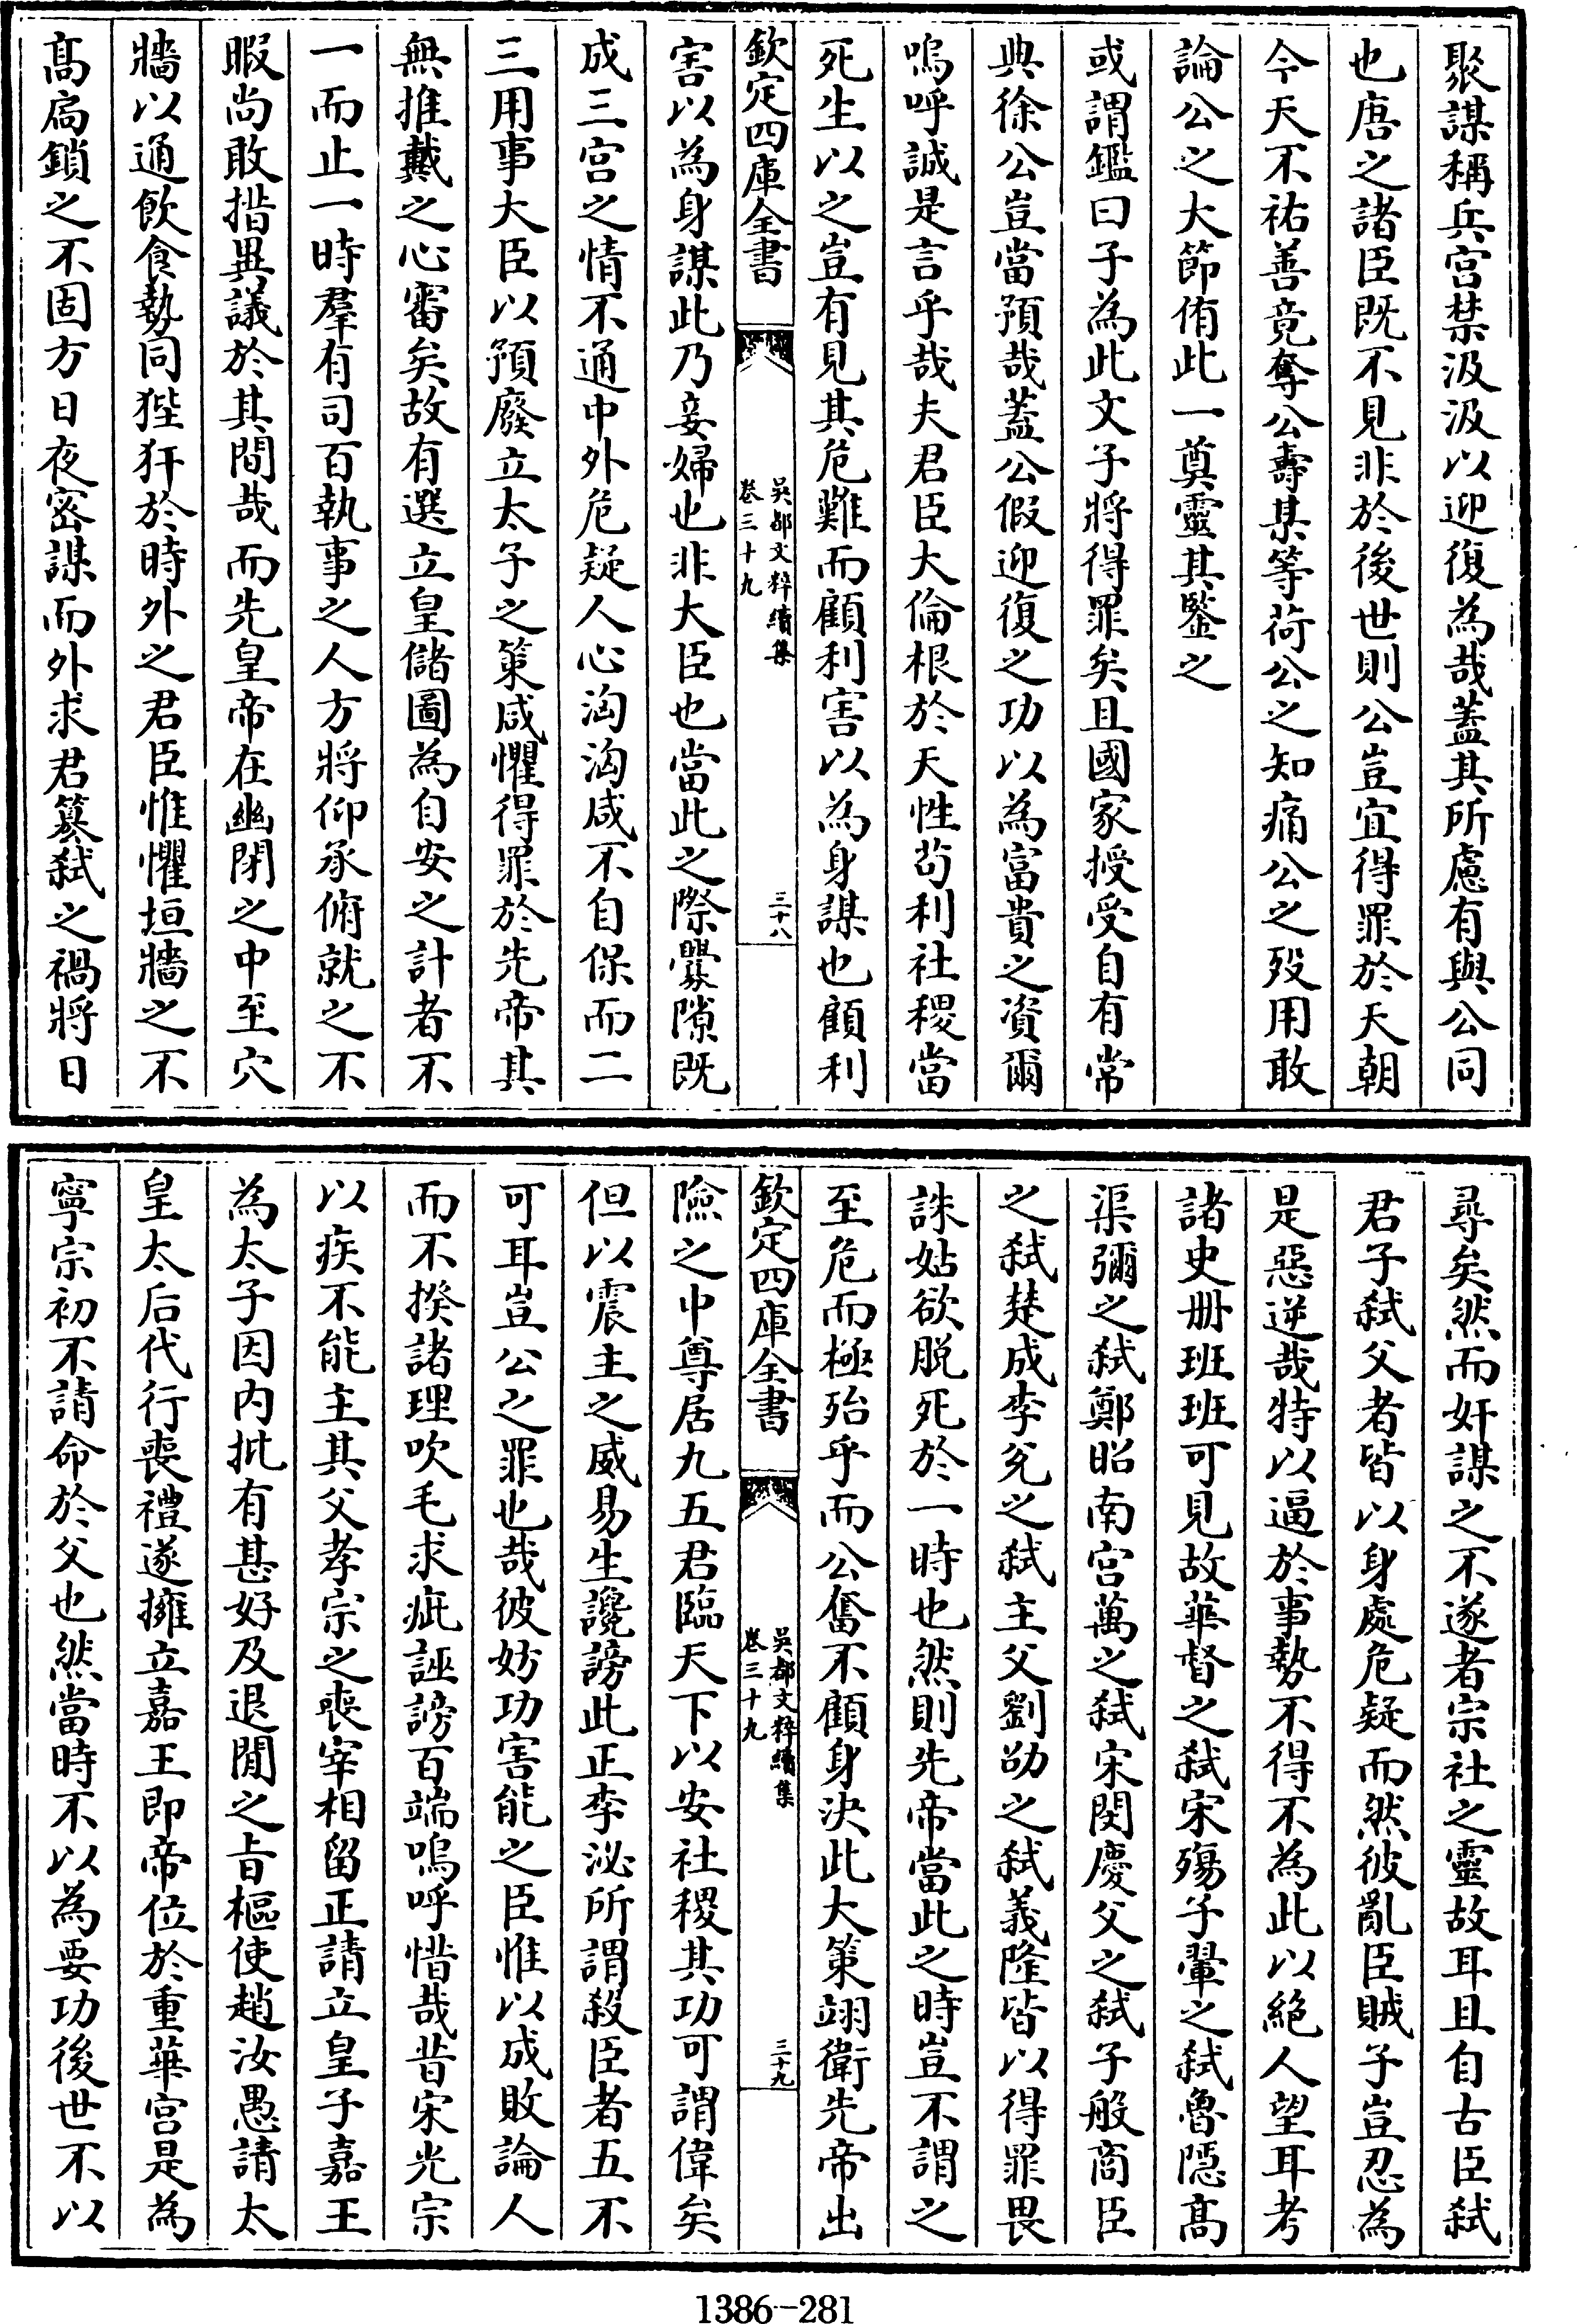 聚謀稱兵宫禁汲汲以迎復為哉蓋其所慮有與公同
也唐之諸臣既不見非於後世則公豈宜得罪於天朝
今天不祐善竟奪公壽某等荷公之知痛公之殁用敢
論公之大節侑此一奠靈其鑒之
或謂鑑曰子為此文子將得罪矣且國家授受自有常
典徐公豈當預哉蓋公假迎復之功以為富貴之資爾
嗚呼誠是言乎哉夫君臣大倫根於天性苟利社稷當
死生以之豈有見其危難而顧利害以為身謀也顧利
欽定四庫全書
吳都文粹續集
卷三十九
三十八
害以為身謀此乃妾婦也非大臣也當此之際釁隙既
成三宫之情不通中外危疑人心洶洶咸不自保而二
三用事大臣以預廢立太子之策咸懼得罪於先帝其
無推戴之心審矣故有選立皇儲圖為自安之計者不
一而止一時羣有司百執事之人方將仰承俯就之不
暇尚敢措異議於其間哉而先皇帝在幽閉之中至穴
牆以通飲食勢同狴犴於時外之君臣惟懼垣牆之不
髙扃鎖之不固方日夜密謀而外求君簒弑之禍將日
尋矣然而奸謀之不遂者宗社之靈故耳且自古臣弑
君子弑父者皆以身處危疑而然彼亂臣賊子豈忍為
是惡逆哉特以逼於事勢不得不為此以絶人望耳考
諸史册班班可見故華督之弑宋殤子翬之弑魯隱髙
渠彌之弑鄭昭南宫萬之弑宋閔慶父之弑子般商臣
之弑楚成李兊之弑主父劉劭之弑義隆皆以得罪畏
誅姑欲脱死於一時也然則先帝當此之時豈不謂之
至危而極殆乎而公奮不顧身決此大策翊衛先帝出
欽定四庫全書
吳都文粹續集
卷三十九
三十九
險之中尊居九五君臨天下以安社稷其功可謂偉矣
但以震主之威易生讒謗此正李泌所謂殺臣者五不
可耳豈公之罪也哉彼妨功害能之臣惟以成敗論人
而不揆諸理吹毛求疵誣謗百端嗚呼惜哉昔宋光宗
以疾不能主其父孝宗之喪宰相留正請立皇子嘉王
為太子因内批有甚好及退閒之㫖樞使趙汝愚請太
皇太后代行喪禮遂擁立嘉王即帝位於重華宫是為
寧宗初不請命於父也然當時不以為要功後世不以
1386-281